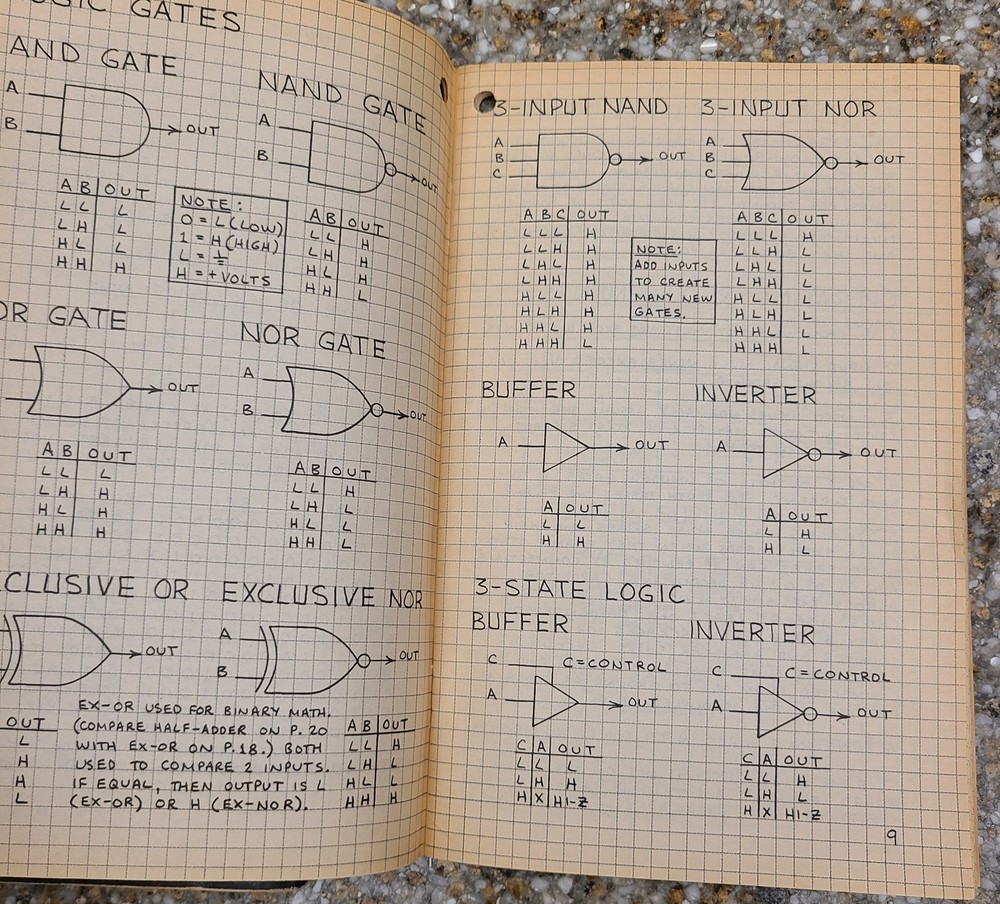 GATES
AND GATE
A
B
OUT
A B OUT
L L L
L H L
H L L
H H H
NOTE:
0 = L (LOW)
1 = H (HIGH)
L = ⏚
H = + VOLTS
NAND GATE
A
B
OUT
A B OUT
L L H
L H H
H L H
H H L
OR GATE
OUT
A B OUT
L L L
L H H
H L H
H H H
NOR GATE
A
B
OUT
A B OUT
L L H
L H L
H L L
H H L
CLUSIVE OR
OUT
OUT
L
H
H
L
EX-OR USED FOR BINARY MATH.
(COMPARE HALF-ADDER ON P. 20
WITH EX-OR ON P. 18.) BOTH
USED TO COMPARE 2 INPUTS.
IF EQUAL, THEN OUTPUT IS L
(EX-OR) OR H (EX-NOR).
EXCLUSIVE NOR
A
B
OUT
A B OUT
L L H
L H L
H L L
H H H
3-INPUT NAND
A
B
C
OUT
A B C OUT
L L L H
L L H H
L H L H
L H H H
H L L H
H L H H
H H L H
H H H L
NOTE:
ADD INPUTS
TO CREATE
MANY NEW
GATES.
3-INPUT NOR
A
B
C
OUT
A B C OUT
L L L H
L L H L
L H L L
L H H L
H L L L
H L H L
H H L L
H H H L
BUFFER
A
OUT
A OUT
L L
H H
INVERTER
A
OUT
A OUT
L H
H L
3-STATE LOGIC
BUFFER
C
C=CONTROL
A
OUT
C A OUT
L L L
L H H
H X HI-Z
INVERTER
C
C=CONTROL
A
OUT
C A OUT
L L H
L H L
H X HI-Z
9